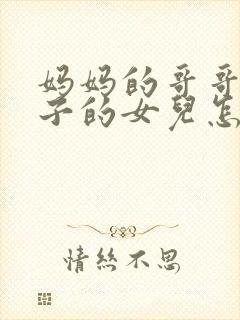 妈妈的哥哥
子的女兒怎
情丝不思